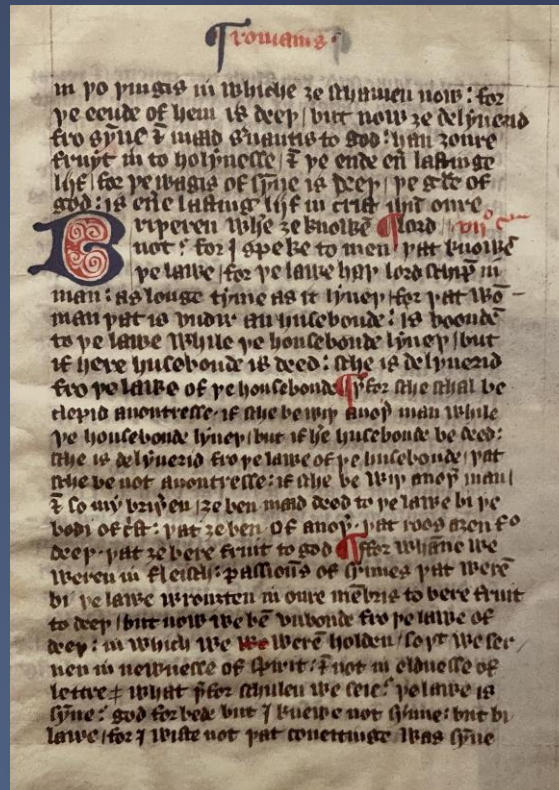 romanis
in þo þingis in whiche ȝe schamen now: for
þe eende of hem is deeþ / but now ȝe delyuerid
fro synne ⁊ maad s̄uauntis to god: han ȝoure
fruyt in to holynesse / ⁊ þe ende eū lastinge
lijf / for þe wagis of synne is deeþ / þe g̃ce of
god: is eūe lasting lijf in crist ihū oure
Briþeren wheþ ȝe knowē ¶ lord / vijº cᵐ
not: for I speke to men / þat knowē
þe lawe / for þe lawe haþ lordschip̄ in
man: as longe tyme as it lyueþ / for þat wō-
man þat is vndur an husebonde: is boondē
to þe lawe while þe housebonde lyueþ / but
if here husebonde is deed: sche is delyuerid
fro þe lawe of þe housebonde ¶ þ̄for sche schal be
clepid auoutresse · if sche be wiþ anoþ̄ man while
þe housebonde lyueþ / but if h̄e husebonde be deed:
sche is delyuerid fro þe lawe of þe husebonde / þat
sche be not auoutresse: if sche be wiþ anoþ̄ man /
⁊ so my briþ̄en / ȝe ben maad deed to þe lawe bi þe
bodi of c̄st: þat ȝe ben of anoþ̄ · þat roos aȝen fº
deeþ · þat ȝe bere fruit to god ¶ ffor whāne we
weren in fleisch: passiouns of synnes þat werē
bi þe lawe wrouȝten in oure mēbris to bere fruit
to deeþ / but now we bē vnbonde fro þe lawe of
deeþ: in which we we werē holden / so þt we ser
uen in newnesse of spirit: ⁊ not in eldnesse of
lettre ⁊ what þ̄for schulen we seie: þe lawe is
synne: god forbede but I knewe not synne: but bi
lawe / for I wiste not þat coueitinge was synne